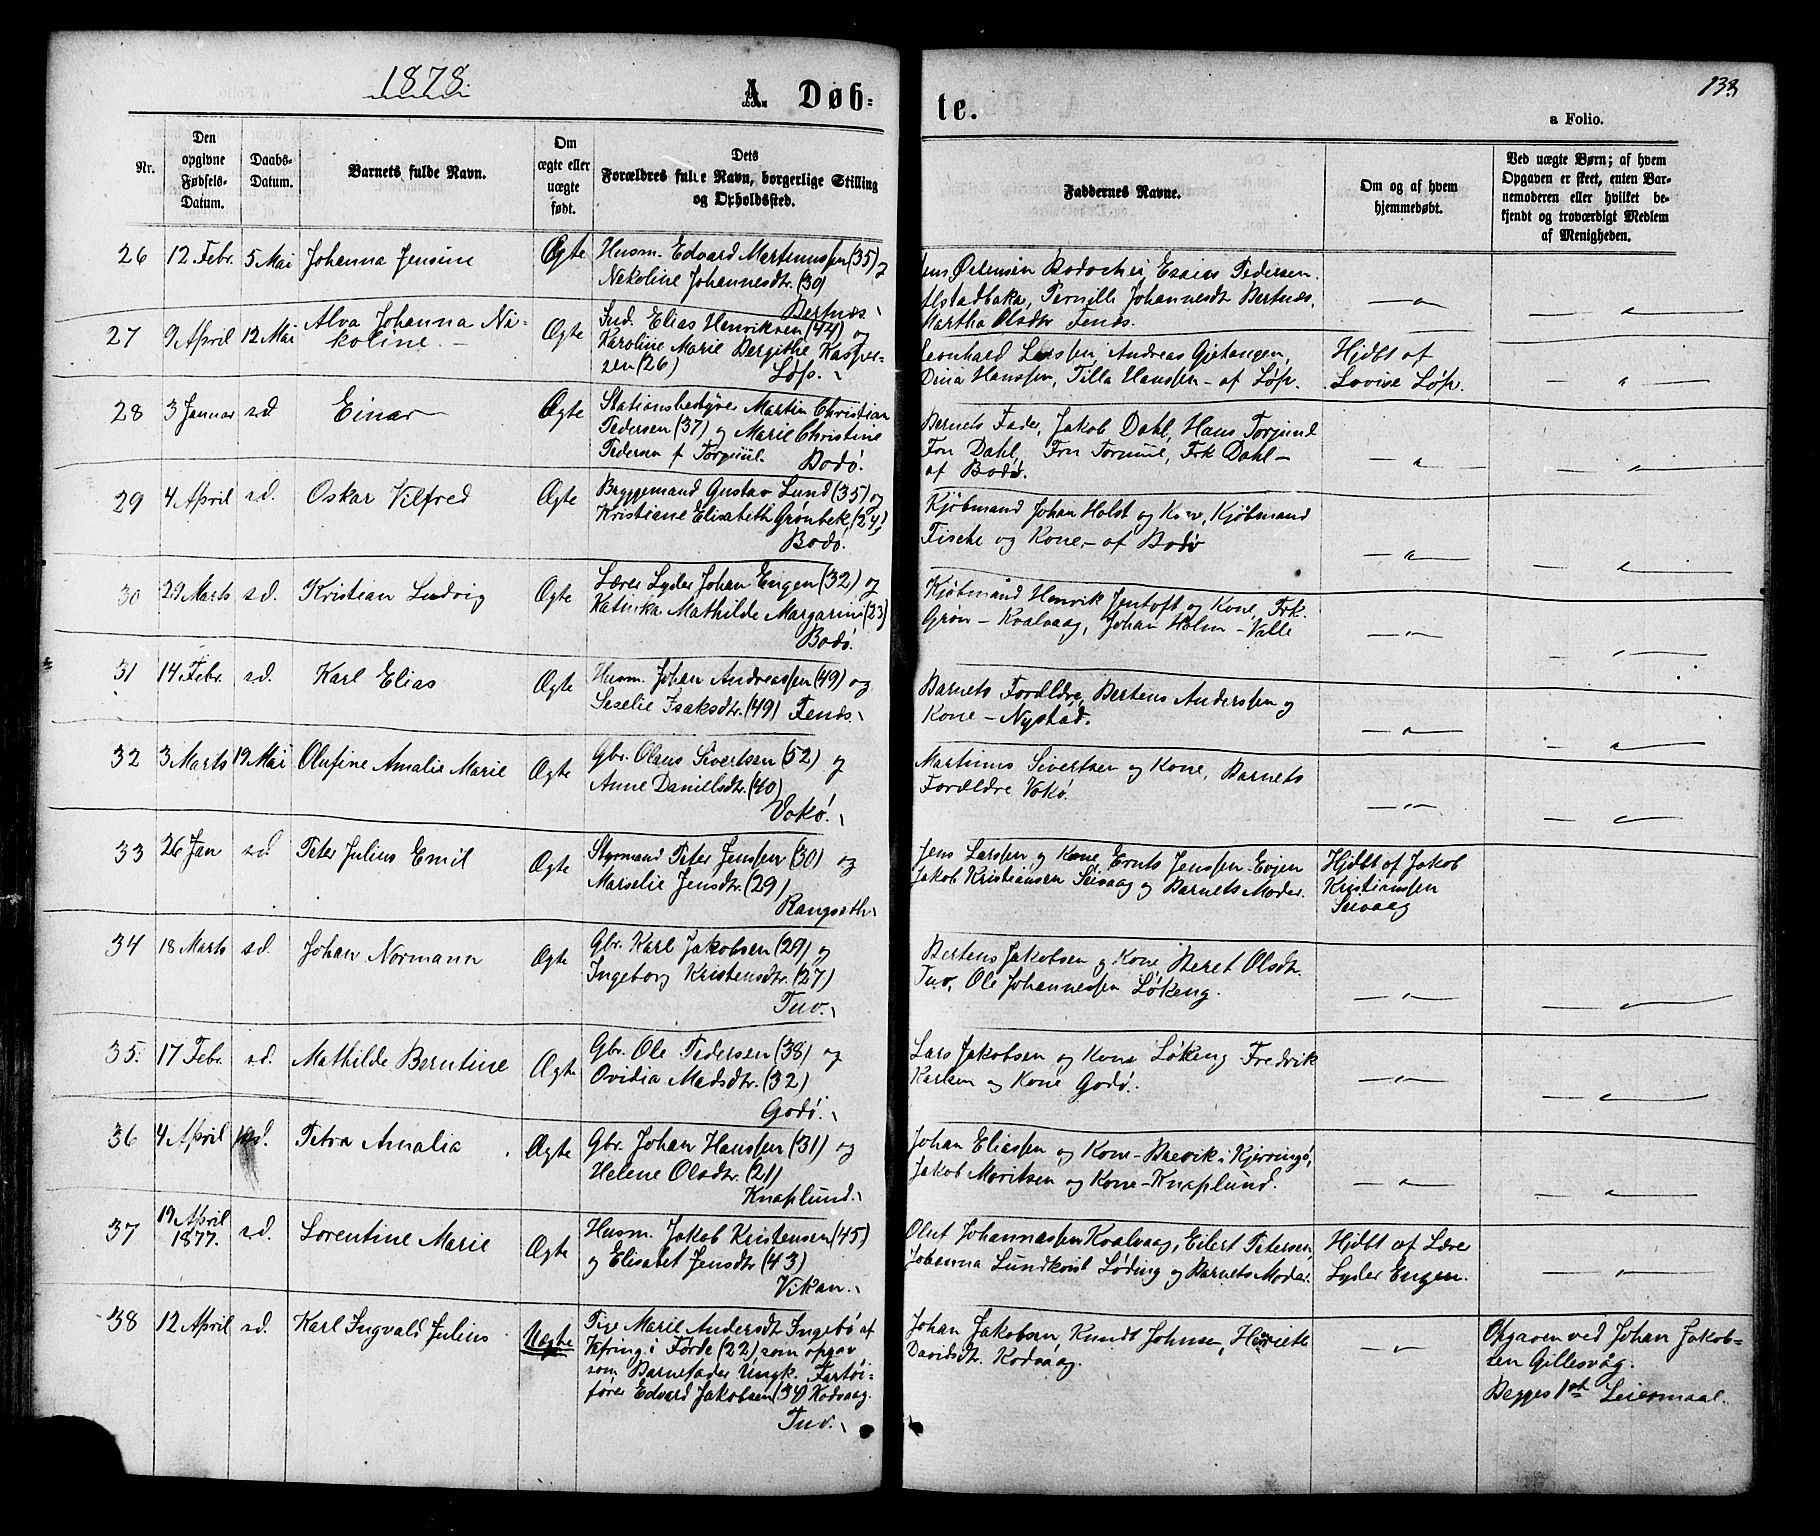 1878.
A Døb=
te.
138
a Folio.
Nr.
Den
opgivne
Fødsels-
Datum.
Daabs-
Datum.
Barnets fulde Navn.
Om
ægte eller
uægte
født.
Dets
Forældres fulde Navn, borgerlige Stilling
og Opholdssted.
Faddernes Navne.
Om og af hvem
hjemmedøbt.
Ved uægte Børn; af hvem
Opgaven er skeet, enten Bar-
nemoderen eller hvilket be-
kjendt og troværdigt Medlem
af Menigheden.
26 12 Febr. 5 Mai Johanna Jensine Ægte
Husm. Edvard Martinussen (35) og
Nikoline Johannesdtr. (30)
Bertnæs.
Jens Østensen Bodøsjøi Esaias Pedersen
Alstadbakn, Pernille Johannesdt Bertnæs,
Martha Olsdtr Fenæs.
— " —
— " —
27 9 April 12 Mai Alva Johanna Ni-
koline. — Ægte
Ind. Elias Henriksen (44) og
Karoline Marie Bergithe Kasper-
sen (26)
Løp.
Leonhard Larssen, Andreas Gjetangen,
Dina Hanssen, Tilla Hanssen — af Løp.
Hjdbt af
Lovise Løp.
— " —
28 3 Januar s.d. Einar Ægte
Stationsbestyrer Martin Christian
Pedersen (37) og Marie Christine
Pedersen f Torjuul.
Bodø.
Barnets Fader, Jakob Dahl, Hans Torjuul
Fru Dahl, Fru Torjuul, Frk Dahl —
af Bodø.
— " —
— " —
29 4 April s.d. Oskar Vilfred Ægte
Bryggemand Gustav Lund (35) og
Kristiane Elisabeth Grønbek, (24),
Bodø.
Kjøbmand Johan Holst og Kone, Kjøbmand
Fische og Kone, — af Bodø
— " —
— " —
30 29 Marts s.d. Kristian Ludvig Ægte
Lærer Lyder Johan Engen (32) og
Katinka Mathilde Margarini (23)
Bodø.
Kjøbmand Henrik Jentoft og Kone, Frk.
Grøn — Kvalvaag, Johan Holm — Valle
— " —
— " —
31 14 Febr. s.d. Karl Elias Ægte
Husm. Johan Andreassen (49) og
Seselie Isaksdtr. (49) Fenæs.
Barnets Forældre, Bertens Anderssen og
Kone — Nystad.
— " —
— " —
32 3 Marts 19 Mai Olufine Amalie Marie Ægte
Gbr. Olaus Sivertsen (52) og
Anne Danielsdtr. (40)
Vokø.
Martinus Sivertsen og Kone, Barnets
Forældre Vokø.
— " —
— " —
33 26 Jan s.d. Peter Julius Emil Ægte
Styrmand Peter Jenssen (30) og
Marselie Jensdtr. (29)
Rangseth
Jens Larssen og Kone, Ernts Jenssen — Evjen
Jakob Kristiansen Seivaag og Barnets Moder.
Hjdbt af Jakob
Kristianssen
Seivaag
34 18 Marts s.d. Johan Normann Ægte
Gbr. Karl Jakobsen (29) og
Ingeborg Kristensdtr. (27)
Tuv.
Bertens Jakobsen og Kone, Beret Olsdtr.
Tuv, Ole Johannessen Løkeng.
— " —
— " —
35. 17 Febr. s.d. Mathilde Berntine Ægte
Gbr. Ole Pedersen (38) og
Ovidia Madsdtr. (32)
Godø.
Lars Jakobsen og Kone Løkeng Fredrik
Karlsen og Kone Godø.
— " —
— " —
36 4 April s.d. Petra Amalia Ægte
Gbr. Johan Hanssen (31) og
Helene Olsdtr. (21)
Knaplund.
Johan Eliassen og Kone — Breivik i Kjerringø,
Jakob Moritsen og Kone — Knaplund.
— " —
— " —
37 19 April
1877. s.d. Lorentine Marie Ægte
Husm. Jakob Kristensen (45)
og Elisabet Jensdtr. (43)
Vikan.
Oluf Johannessen Kvalvaag, Eilert Petersen,
Johanna Lundkvist Løding og Barnets Moder.
Hjdbt af Lærer
Lyder Engen.
— " —
38 12 April s.d. Karl Ingvald Julius Uægte
Pige Marie Andersdtr Ingebø af
Vefring i Førde (22) som opgav
som Barnefader Ungk. Fartøi-
fører Edvard Jakobsen (34) Kodvaag.
Tuv.
Johan Jakobsen, Knudt Johnsen, Henriette
Davidsdtr. Kodvaag.
— " —
Opgaven ved Johan Jakob-
sen Gillesvåg.
Begges 1ste Leiermaal.